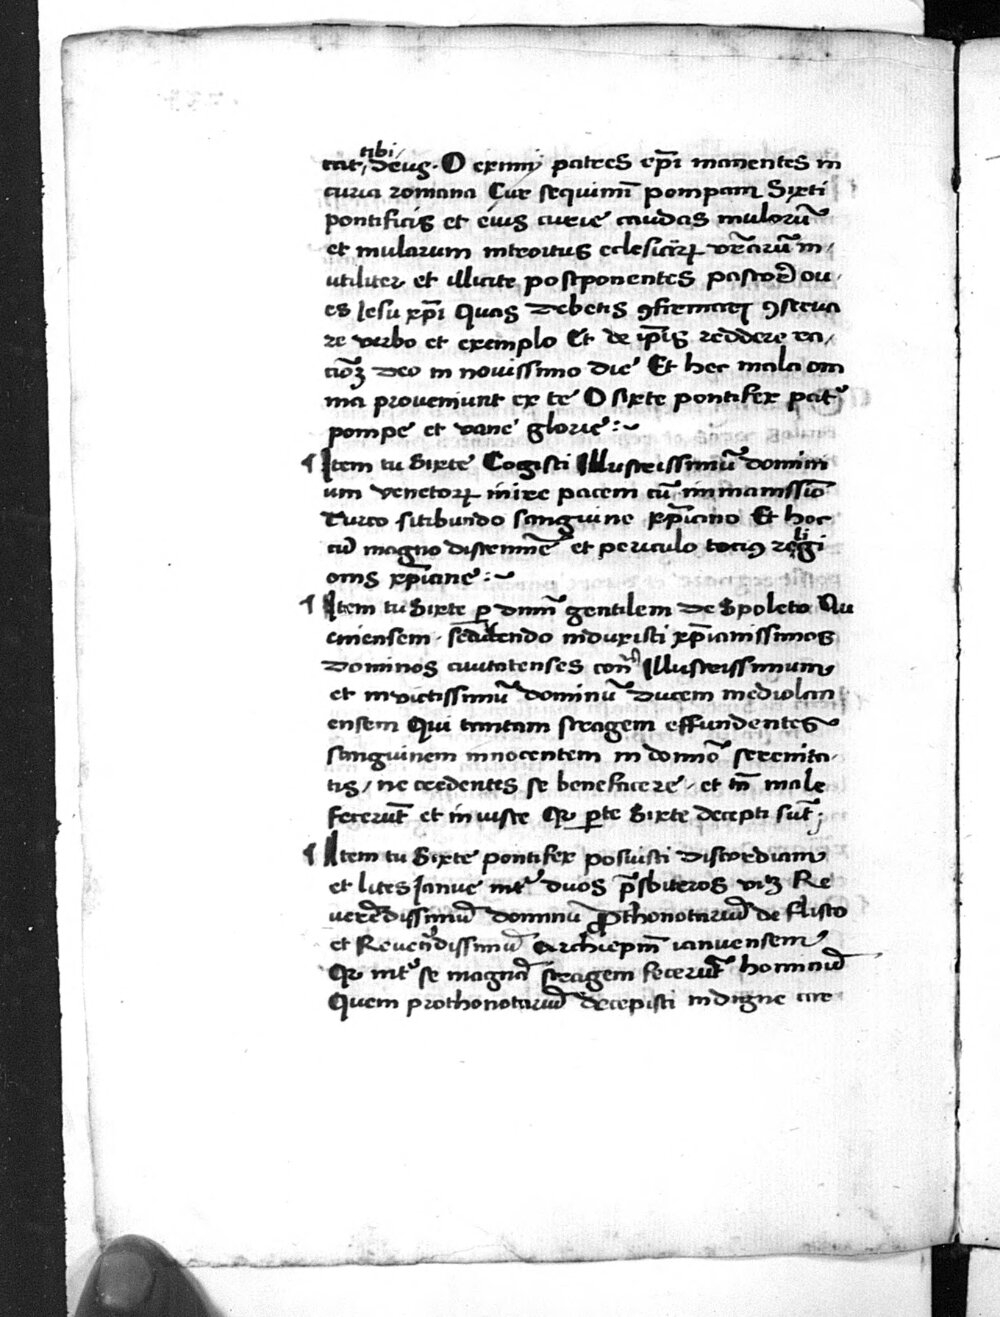 tat / deus tibi / . O eximij patres xp̄i manentes in
curia romana Cur sequimī pompam Sixti
pontificis et eius curie caudas mulorū
et mularum introitus eclesiarꝝ vr̄arū in/
utiliter et illicite postponentes pastor̄ ou/
es Iesu xp̄i Quas debetis ꝯfirmare ꝯserua
re verbo et exemplo Et de ip̄is reddere ra/
cioꝫ deo in nouissimo die Et hec mala om
nia proueniunt ex te O sixte pontifex pat͛
pompe et vane glorie :~
¶ Item tu Sixte Cogisti Illustrissimū domini
um venetorꝝ inire pacem cū immanissīo
Turco sitibundo sanguine xp̄iano Et hoc
cū magno discrimīe et periculo tociꝰ religi
onis xp̄iane :~
¶ Item tu Sixte ꝑ dn̄m gentilem de Spoleto Au
cniensem seducendo induxisti xp̄ianissimos
dominos ciuitatenses con͛ Illustrissimum
et inuictissimū dominū ducem mediolan
ensem Qui tantam stragem effundentes
sanguinem innocentem in domīo serenita/
tis / ne credentes se benefacere / et tn̄ male
fecerūt et iniuste Qꝛ ꝑ te Sixte decepti sūt ;
¶ Item tu Sixte pontifex posuisti discordiam
et lites Ianue int͛ duos pr̄sbiteros viꝫ Re
uerēdissimū dominū prothonotariū de flisco
et Reuerēdissimū Archiepm̄ ianuensem
Qꝛ int͛ se magnā stragem fecerūt hominū
Quem prothonotariū decepisti indigne cre